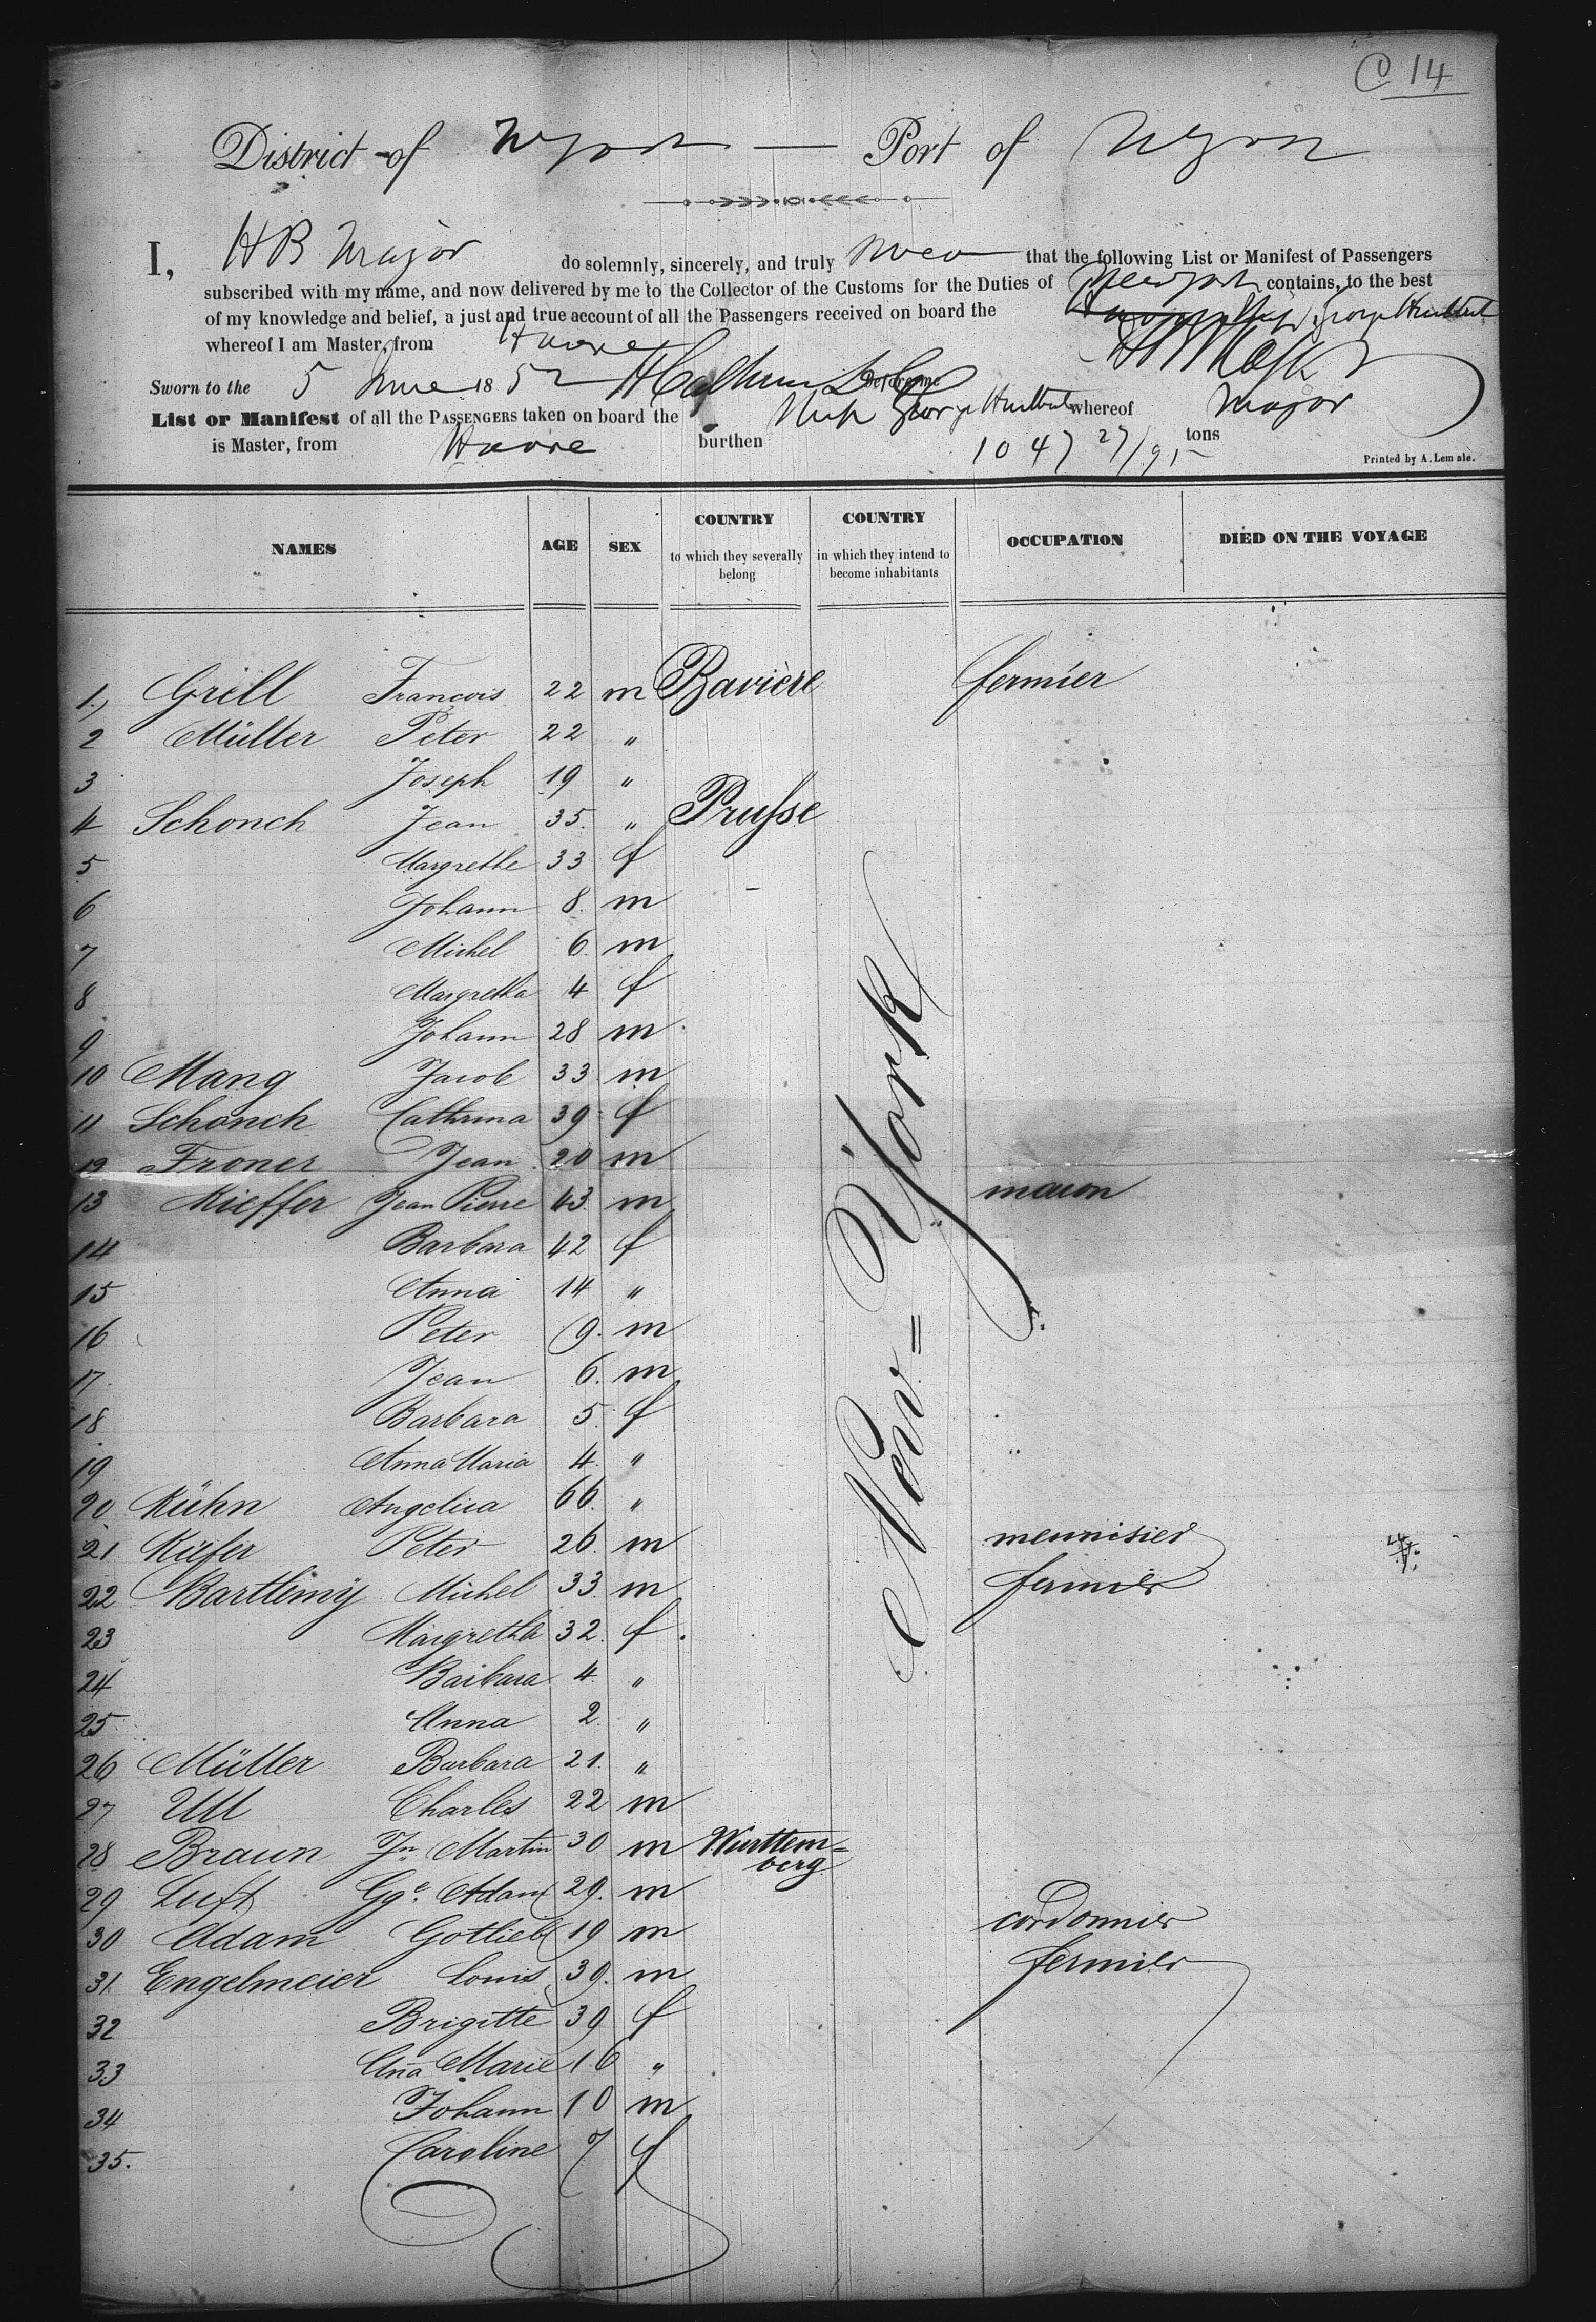 C 14
District of NYork — Port of NYork
I, HB Major do solemnly, sincerely, and truly swear that the following List or Manifest of Passengers
subscribed with my name, and now delivered by me to the Collector of the Customs for the Duties of New York contains, to the best
of my knowledge and belief, a just and true account of all the Passengers received on board the Ship George Hurlbut
whereof I am Master, from Havre
Sworn to the 5 June 1852 Before me HB Major
List or Manifest of all the PASSENGERS taken on board the Ship George Hurlbut whereof Major
is Master, from Havre burthen 1047 27/95 tons
Printed by A. Lemale.
NAMES AGE SEX COUNTRY to which they severally belong COUNTRY in which they intend to become inhabitants OCCUPATION DIED ON THE VOYAGE
1. Grill François 22 m Bavière fermier
2 Müller Peter 22 "
3 Joseph 19 "
4 Schonch Jean 35 " Prusse
5 Margrethe 33 f
6 Johann 8 m
7 Michel 6 m
8 Margretha 4 f
9 Johann 28 m
10 Mang Jacob 33 m
11 Schonch Cathrina 39 f
12 Froner Jean 20 m
13 Kieffer Jean Pierre 43 m macon
14 Barbara 42 f
15 Anna 14 "
16 Peter 9 m
17 Jean 6 m
18 Barbara 5 f
19 Anna Maria 4 "
20 Kühn Angelica 66 "
21 Kiefer Peter 26 m menuisier
22 Bartlimÿ Michel 33 m fermier
23 Margretha 32 f
24 Barbara 4 "
25 Anna 2 "
26 Müller Barbara 21 "
27 Ull Charles 22 m
28 Braun Jn Martin 30 m Württem=
berg
29 Luft Gge Adam 29 m
30 Adam Gottlieb 19 m cordonnier
31 Engelmeier Louis 39 m fermier
32 Brigitte 39 f
33 Aña Marie 16 "
34 Johann 10 m
35. Caroline 7 f
New=York